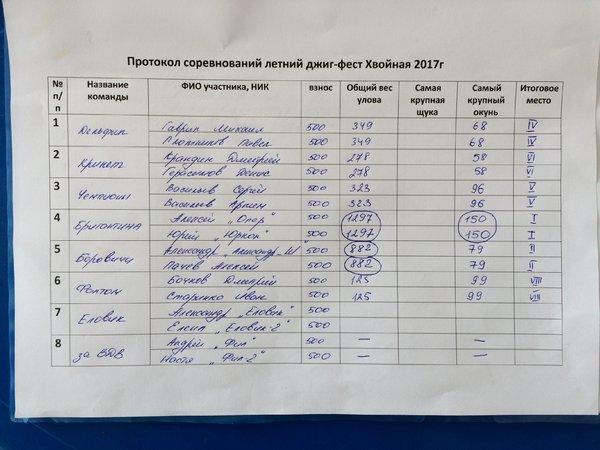 Протокол соревнований летний джиг-фест Хвойная 2017г
№ п/п Название команды ФИО участника, НИК взнос Общий вес улова Самая крупная щука Самый крупный окунь Итоговое место
1 Дельфин Гаврин Михаил 500 349 68 IV
Плотников Павел 500 349 68 IV
2 Крикет Дмитрий 500 278 58 VI
Герасимов Денис 500 278 58 VI
3 Чемпион Васильев Сергей 500 323 96 V
Васильев Артем 500 323 96 V
4 Бригантина Алексей „Опор" 500 1297 150 I
Юрий „Юркон" 500 1297 150 I
5 Боровичи Александр „Александр Ш" 500 882 79 II
Пачев Алексей 500 882 79 II
6 Фантом Бочков Дмитрий 500 125 99 VIII
Старенко Иван 500 125 99 VIII
7 Еловик Александр „Еловик" 500
„Еловик-2" 500
8 за ВДВ Андрей „Фил" 500 — —
Настя „Фил-2" 500 — —